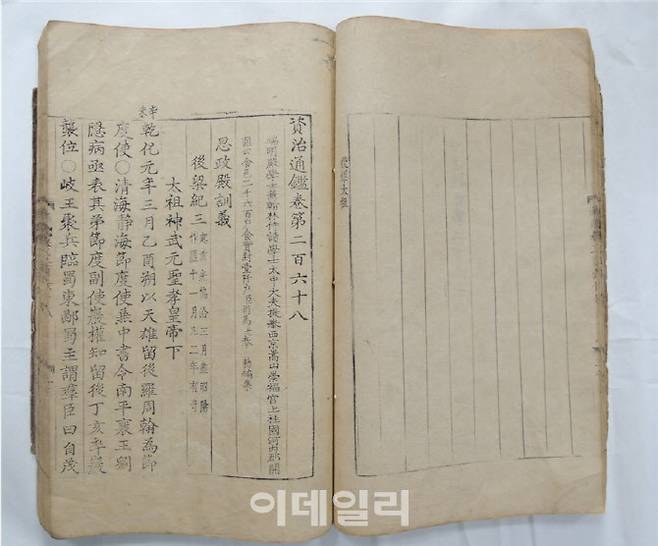 後梁太祖
資治通鑑卷第二百六十八
端明殿學士兼翰林侍讀學士太中大夫提擧西京嵩山崇福宮上柱國河內郡開
國公食邑二千六百戶食實封壹阡戶臣司馬光奉 勅編集
思政殿訓義
後梁紀三 起重光協洽三月盡昭陽
作噩十一月凡二年有奇
太祖神武元聖孝皇帝下
辛未
乾化元年三月乙酉朔以天雄留後羅周翰為節
度使○清海靜海節度使兼中書令南平襄王劉
隱病亟表其弟節度副使巖權知留後丁亥卒巖
襲位○岐王聚兵臨蜀東鄙蜀主謂羣臣曰自茂
이데일리